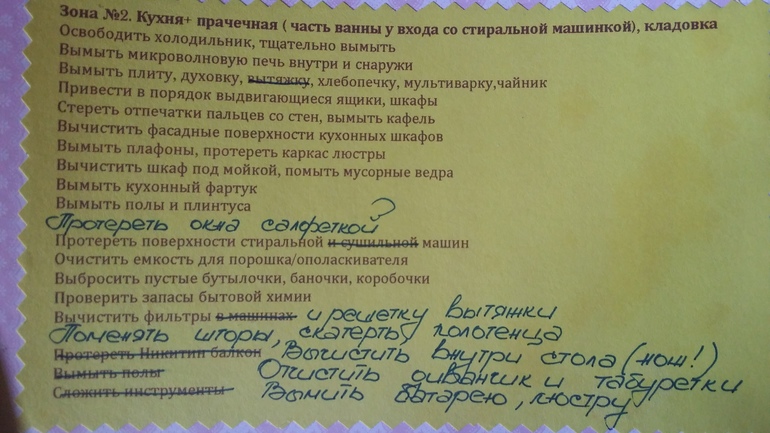 Зона №2. Кухня+ прачечная ( часть ванны у входа со стиральной машинкой), кладовка
Освободить холодильник, тщательно вымыть
Вымыть микроволновую печь внутри и снаружи
Вымыть плиту, духовку, вытяжку, хлебопечку, мультиварку,чайник
Привести в порядок выдвигающиеся ящики, шкафы
Стереть отпечатки пальцев со стен, вымыть кафель
Вычистить фасадные поверхности кухонных шкафов
Вымыть плафоны, протереть каркас люстры
Вычистить шкаф под мойкой, помыть мусорные ведра
Вымыть кухонный фартук
Вымыть полы и плинтуса
Протереть окна салфеткой ?
Протереть поверхности стиральной и сушильной машин
Очистить емкость для порошка/ополаскивателя
Выбросить пустые бутылочки, баночки, коробочки
Проверить запасы бытовой химии
Вычистить фильтры в машинах и решетку вытяжки
Поменять шторы, скатерть, полотенца
Протереть Никитин балкон Вычистить внутри стола (нож!)
Вымыть полы Очистить диванчик и табуретки
Сложить инструменты Вымыть батарею, люстру